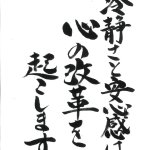 冷静さと安心感は
心の改革を
起こします